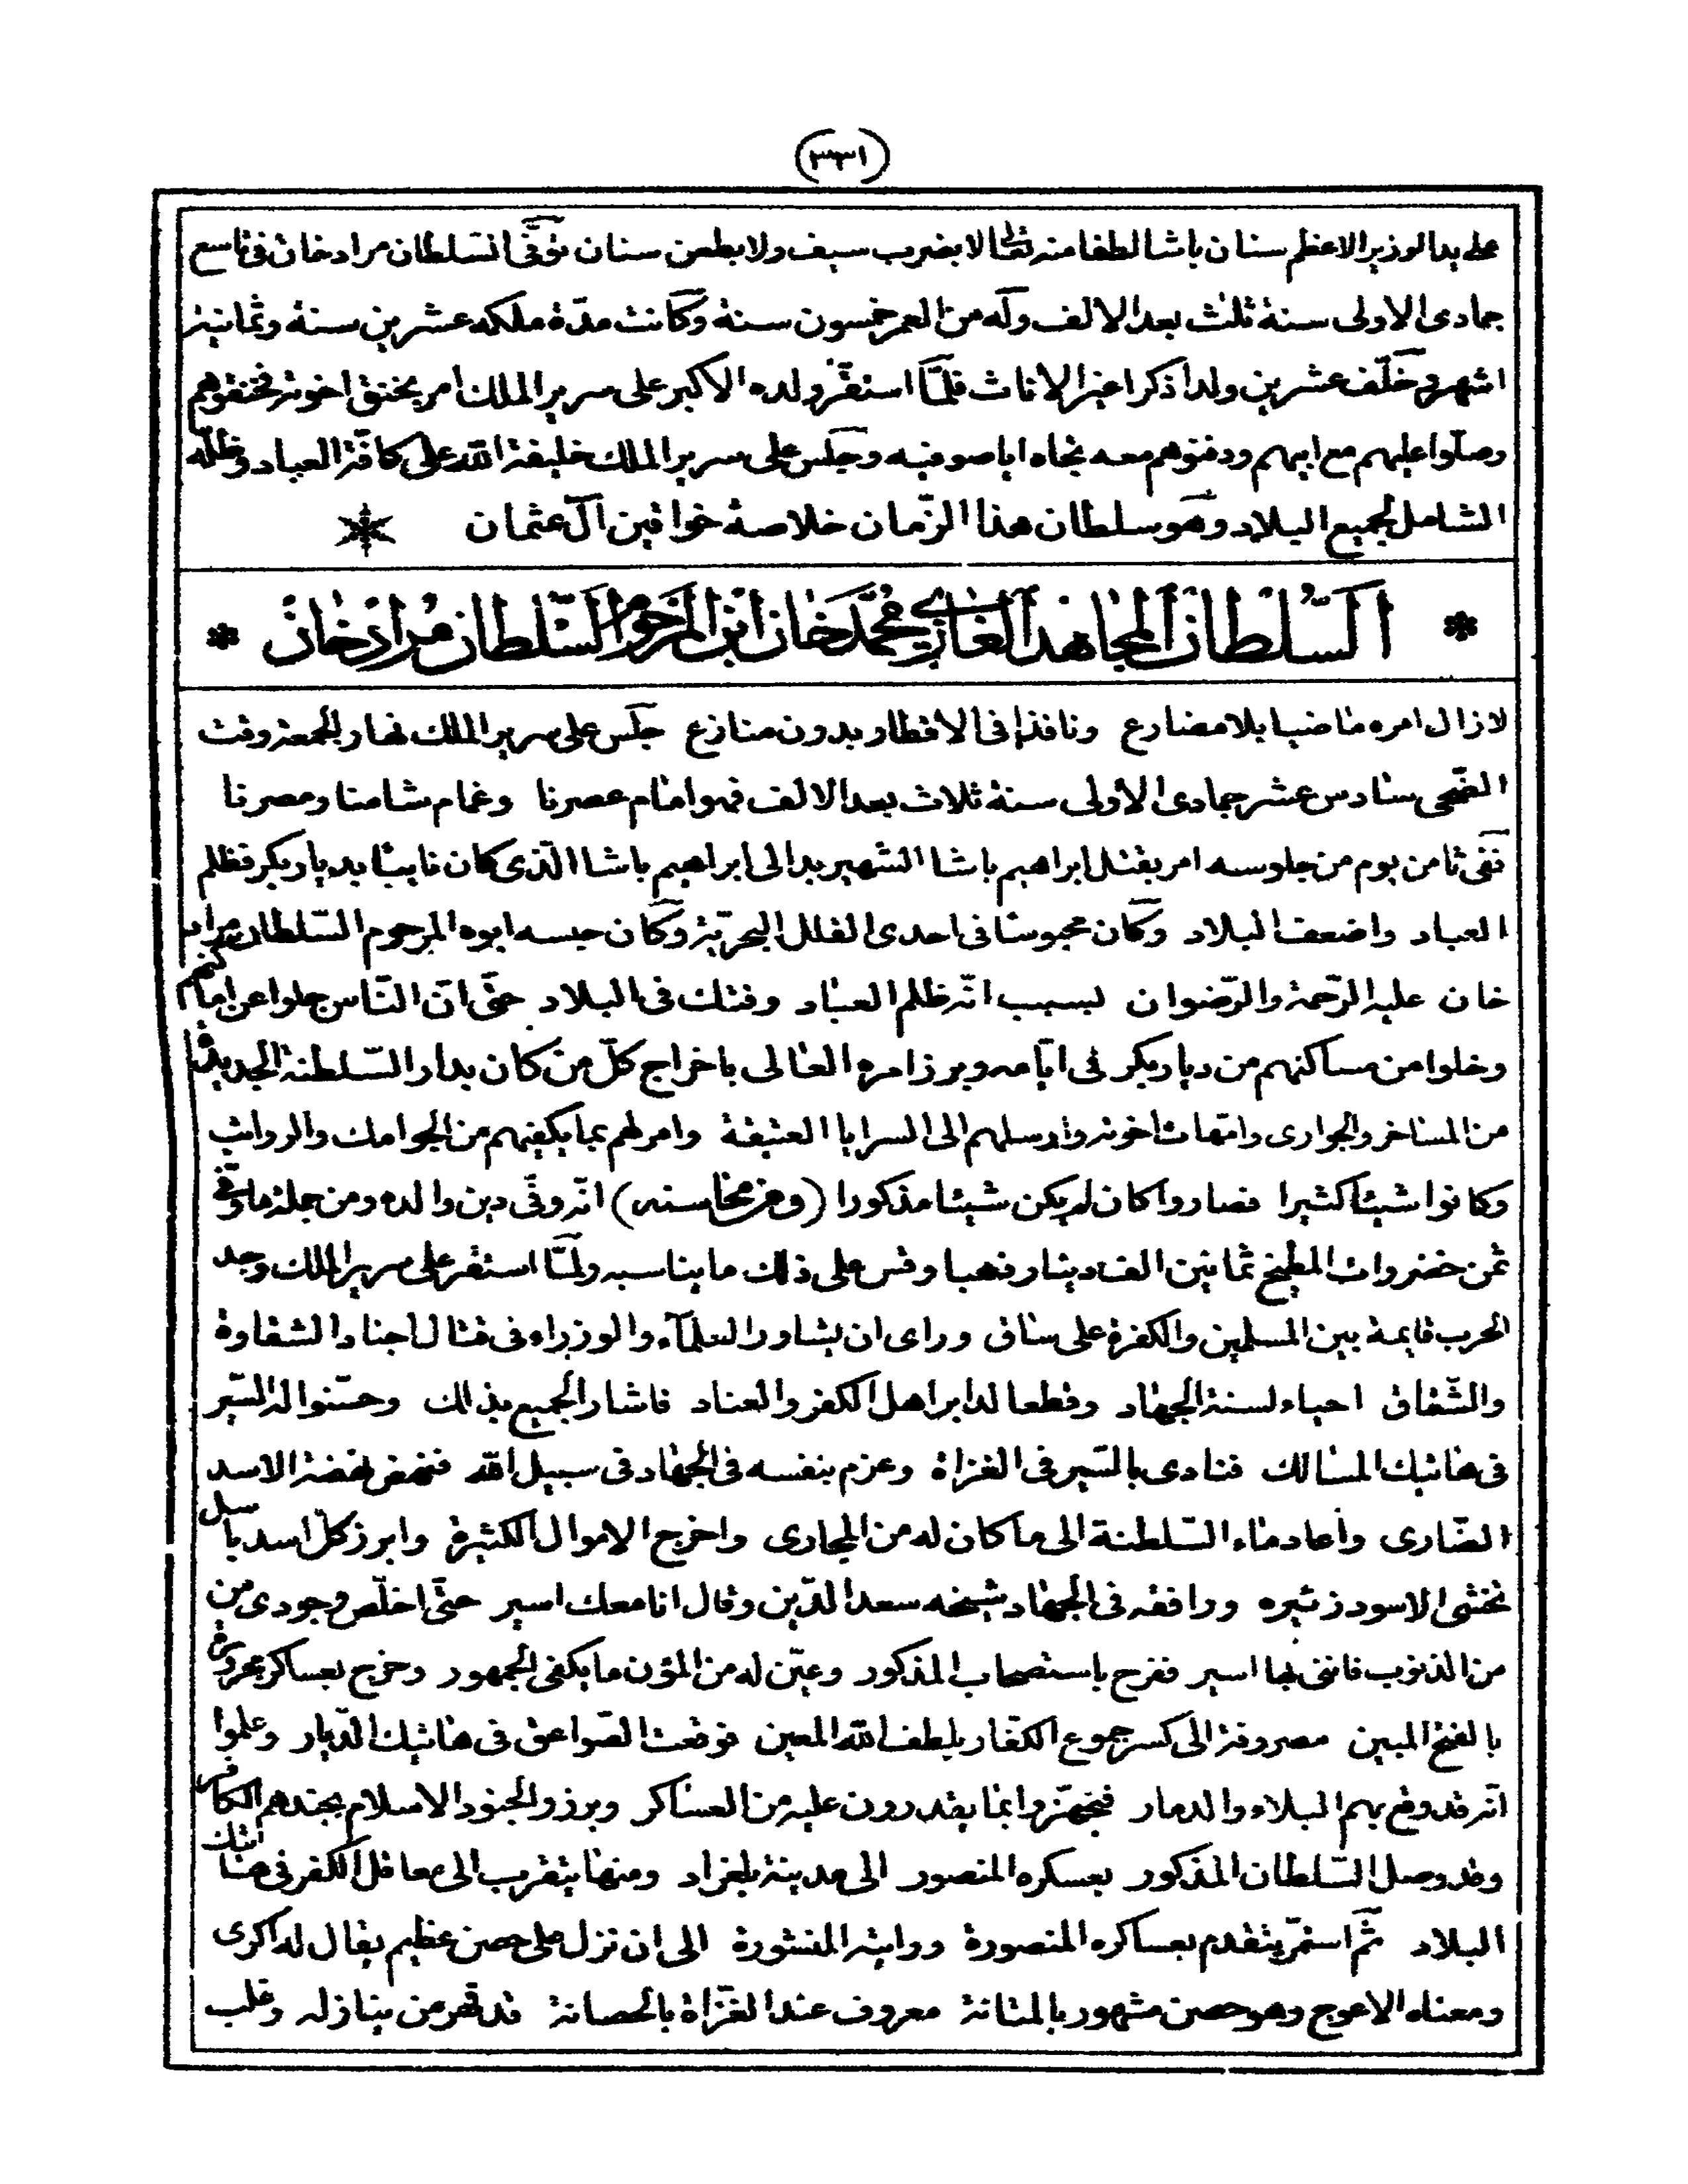 (٣٣١)
على يد الوزير الاعظم سنان باشا لطفا منه تعالى لا بضرب سيف ولا بطعن سنان توفّى السّلطان مراد خان فى تاسع
جمادى الاولى سنة ثلث بعد الالف وله من العمر خمسون سنة وكانت مدّة ملكه عشرين سنة وثمانية
اشهر وخلّف عشرين ولدا ذكرا غير الاناث فلمّا استقرّ ولده الاكبر على سرير الملك امر بخنق اخوته فخنقوهم
وصلّوا عليهم مع ابيهم ودفنوهم معه تجاه اياصوفيه وجلس على سرير الملك خليفة الله على كافّة العباد وظلّه
الشامل لجميع البلاد وهو سلطان هذا الزّمان خلاصة خواقين آل عثمان
السّلطان المجاهد الغازى محمّد خان ابن المرحوم السّلطان مراد خان
لا زال امره ماضيا بلا مضارع ونافذا فى الاقطار بدون منازع جلس على سرير الملك نهار الجمعة وقت
الضّحى سادس عشر جمادى الاولى سنة ثلاث بعد الالف فهو امام عصرنا وغمام شامنا ومصرنا
ففى ثامن يوم من جلوسه امر بقتل ابراهيم باشا الشهير بدالى ابراهيم باشا الّذى كان نايبا بديار بكر فظلم
العباد واضعف البلاد وكان محبوسا فى احدى القلل البحريّة وكان حبسه ابوه المرحوم السّلطان مراد
خان عليه الرّحمة والرّضوان لسبب انّه ظلم العباد وفتك فى البلاد حتّى انّ النّاس جلوا عن اماكنهم
وخلوا من مساكنهم من ديار بكر فى ايّامه وبرز امره العالى باخراج كلّ من كان بدار السّلطنة الجديدة
من المساخر والجوارى وامّهات اخوته وارسلهم الى السرايا العتيقة وامر لهم بما يكفيهم من الجوامك والرواتب
وكانوا شيئا كثيرا فصاروا كان لم يكن شيئا مذكورا (ومن محاسنه) انّه وفّى دين والده ومن جملة ما وفّى
ثمن خضروات المطبخ ثمانين الف دينار ذهبا وقس على ذلك ما يناسبه ولمّا استقر على سرير الملك وجد
الحرب قايمة بين المسلمين والكفرة على ساق وراى ان يشاور العلماء والوزراء فى قتال اجناد الشقاوة
والشّقاق احياء لسنة الجهاد وقطعا لدابر اهل الكفر والعناد فاشار الجميع بذلك وحسّنوا له السّير
فى هاتيك المسالك فنادى بالسّير فى الغزاة وعزم بنفسه فى الجهاد فى سبيل الله فنهض نهضة الاسد
الضّارى واعاد ماء السّلطنة الى ما كان له من المجارى واخرج الاموال الكثيرة وابرز كلّ اسد باسل
تخشى الاسود زئيره ورافقه فى الجهاد شيخه سعد الدّين وقال انا معك اسير حتّى اخلّص وجودى من
من الذنوب فاننى بها اسير ففرح باستصحاب المذكور وعيّن له من المؤن ما يكفى الجمهور وخرج بعساكر محروسة
بالفتح المبين مصروفة الى كسر جموع الكفّار بلطف الله المعين فوقعت الصّواعق فى هاتيك الدّيار وعلموا
انّه قد وقع بهم البلاء والدمار فتجهّزوا بما يقدرون عليه من العساكر وبرزوا لجنود الاسلام بجندهم الكافر
وقد وصل السّلطان المذكور بعسكره المنصور الى مدينة بلغراد ومنها يتقرب الى معاقل الكفر فى هاتيك
البلاد ثمّ استمرّ يتقدم بعساكره المنصورة ورايته المنشورة الى ان نزل على حصن عظيم يقال له اكرى
ومعناه الاعوج وهو حصن مشهور بالمتانة معروف عند الغزّاة بالحصانة قد قهر من ينازله وغلب